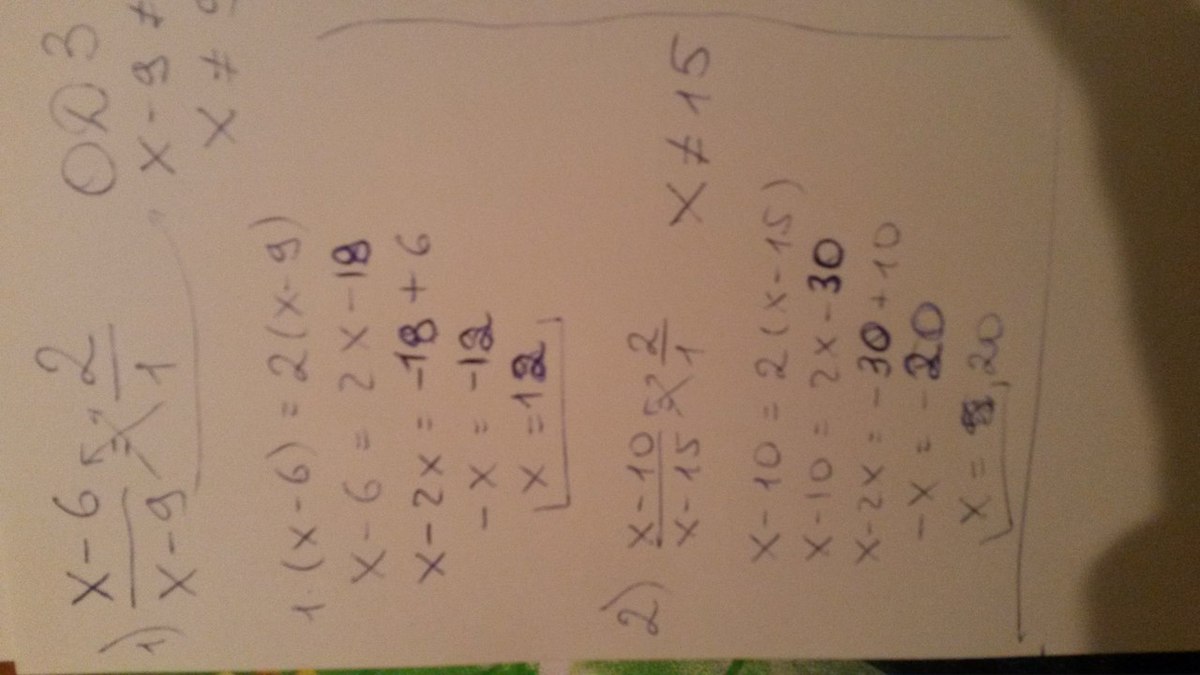 1) (x-6)/(x-9) = 2/1
OD3
x-9 ≠
x ≠
1·(x-6) = 2(x-9)
x-6 = 2x-18
x-2x = -18+6
-x = -12
x = 12
2) (x-10)/(x-15) = 2/1
x ≠ 15
x-10 = 2(x-15)
x-10 = 2x-30
x-2x = -30+10
-x = -20
x = 20